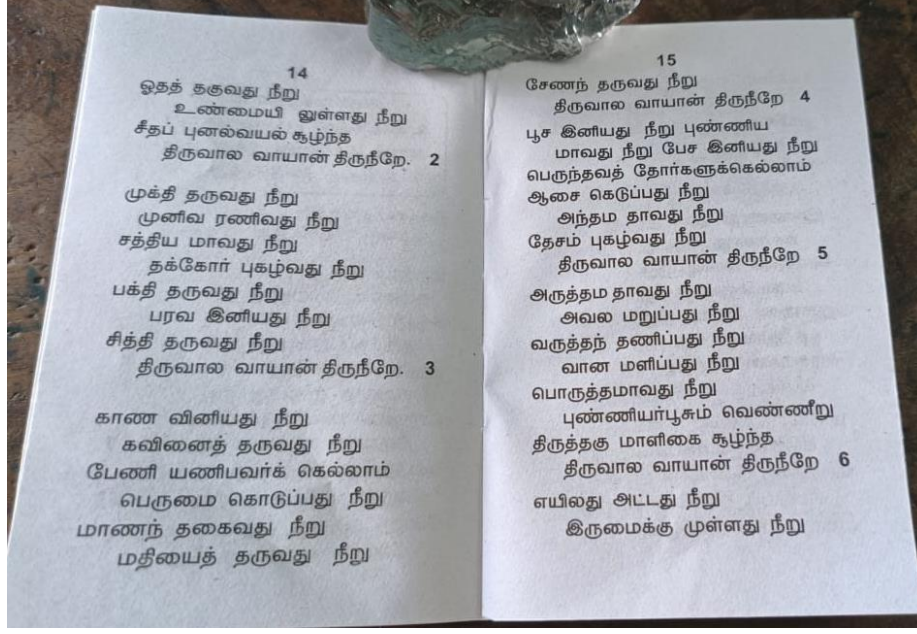 14
ஓதத் தகுவது நீறு
உண்மையி லுள்ளது நீறு
சீதப் புனல்வயல் சூழ்ந்த
திருவால வாயான் திருநீறே. 2
முக்தி தருவது நீறு
முனிவ ரணிவது நீறு
சத்திய மாவது நீறு
தக்கோர் புகழ்வது நீறு
பக்தி தருவது நீறு
பரவ இனியது நீறு
சித்தி தருவது நீறு
திருவால வாயான் திருநீறே. 3
காண வினியது நீறு
கவினைத் தருவது நீறு
பேணி யணிபவர்க் கெல்லாம்
பெருமை கொடுப்பது நீறு
மாணந் தகைவது நீறு
மதியைத் தருவது நீறு
15
சேணந் தருவது நீறு
திருவால வாயான் திருநீறே 4
பூச இனியது நீறு புண்ணிய
மாவது நீறு பேச இனியது நீறு
பெருந்தவத் தோர்களுக்கெல்லாம்
ஆசை கெடுப்பது நீறு
அந்தம தாவது நீறு
தேசம் புகழ்வது நீறு
திருவால வாயான் திருநீறே 5
அருத்தம தாவது நீறு
அவல மறுப்பது நீறு
வருத்தந் தணிப்பது நீறு
வான மளிப்பது நீறு
பொருத்தமாவது நீறு
புண்ணியர்பூசும் வெண்ணீறு
திருத்தகு மாளிகை சூழ்ந்த
திருவால வாயான் திருநீறே 6
எயிலது அட்டது நீறு
இருமைக்கு முள்ளது நீறு